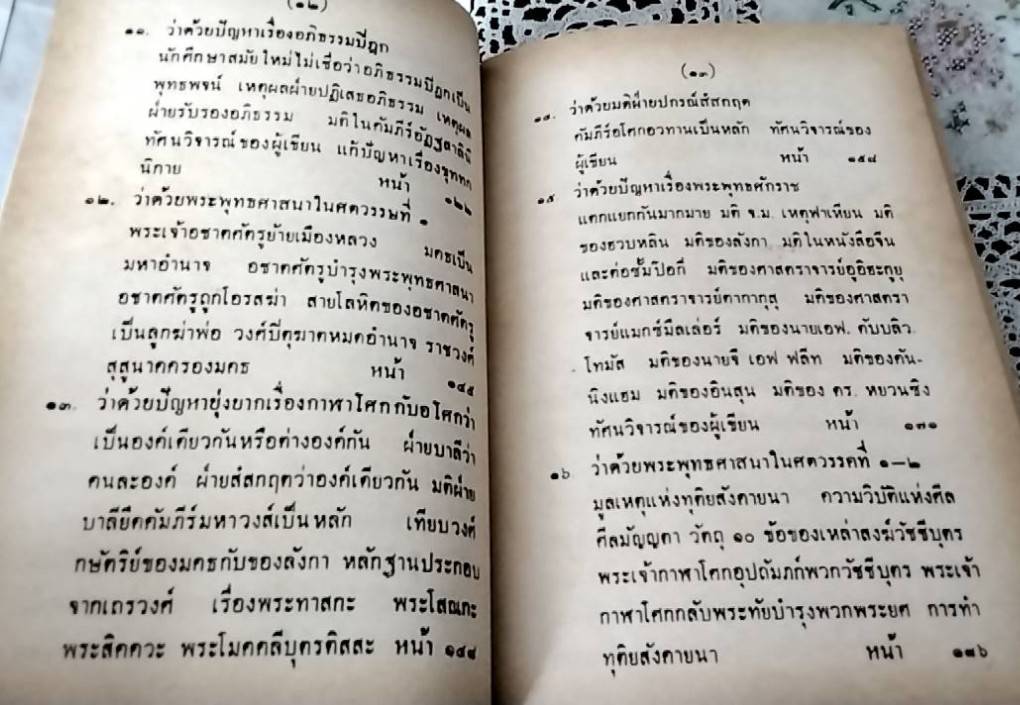 (๑๒)
๑๑. ว่าด้วยปัญหาเรื่องอภิธรรมปิฎก
นักศึกษาสมัยใหม่ไม่เชื่อว่าอภิธรรมปิฎกเป็น
พุทธพจน์ เหตุผลฝ่ายปฏิเสธอภิธรรม เหตุผล
ฝ่ายรับรองอภิธรรม มติในคัมภีร์อัฏฐสาลินี
ทัศนวิจารณ์ของผู้เขียน แก้ปัญหาเรื่องขุททก
นิกาย หน้า ๑๒๒
๑๒. ว่าด้วยพระพุทธศาสนาในศตวรรษที่ ๑
พระเจ้าอชาตศัตรูย้ายเมืองหลวง มคธเป็น
มหาอำนาจ อชาตศัตรูบำรุงพระพุทธศาสนา
อชาตศัตรูถูกโอรสฆ่า สายโลหิตของอชาตศัตรู
เป็นลูกฆ่าพ่อ วงศ์ปิตุฆาตหมดอำนาจ ราชวงศ์
สุสูนาคครองมคธ หน้า ๑๔๕
๑๓. ว่าด้วยปัญหายุ่งยากเรื่องกาฬาโศกกับอโศกว่า
เป็นองค์เดียวกันหรือต่างองค์กัน ฝ่ายบาลีว่า
คนละองค์ ฝ่ายสํสกฤตว่าองค์เดียวกัน มติฝ่าย
บาลียึดคัมภีร์มหาวงส์เป็นหลัก เทียบวงศ์
กษัตริย์ของมคธกับของลังกา หลักฐานประกอบ
จากเถรวงศ์ เรื่องพระทาสกะ พระโสณกะ
พระสิคควะ พระโมคคลีบุตรติสสะ หน้า
(๑๓)
๑๔. ว่าด้วยมติฝ่ายปกรณ์สํสกฤต
คัมภีร์อโศกอวทานเป็นหลัก ทัศนวิจารณ์ของ
ผู้เขียน หน้า ๑๕๘
๑๕ ว่าด้วยปัญหาเรื่องพระพุทธศักราช
แตกแยกกันมากมาย มติ จ.ม. เหตุฟาเหียน มติ
ของฮวบหลิน มติของลังกา มติในหนังสือจีน
และต่อชั้มป๊อกี่ มติของศาสตราจารย์อูอิฮะกูยู
มติของศาสตราจารย์ตากากุสุ มติของศาสตรา
จารย์แมกซ์มึลเล่อร์ มติของนายเอฟ. ดับบลิว.
โทมัส มติของนายจี เอฟ ฟลีท มติของคัน-
นิงแฮม มติของอินสุน มติของ ดร. หยวนซิง
ทัศนวิจารณ์ของผู้เขียน หน้า ๑๗๑
๑๖ ว่าด้วยพระพุทธศาสนาในศตวรรคที่ ๑–๒
มูลเหตุแห่งทุติยสังคายนา ความวิบัติแห่งศีล
ศีลมัญญตา วัตถุ ๑๐ ข้อของเหล่าสงฆ์วัชชีบุตร
พระเจ้ากาฬาโศกอุปถัมภก์พวกวัชชีบุตร พระเจ้า
กาฬาโศกกลับพระทัยบำรุงพวกพระยศ การทำ
ทุติยสังคายนา หน้า